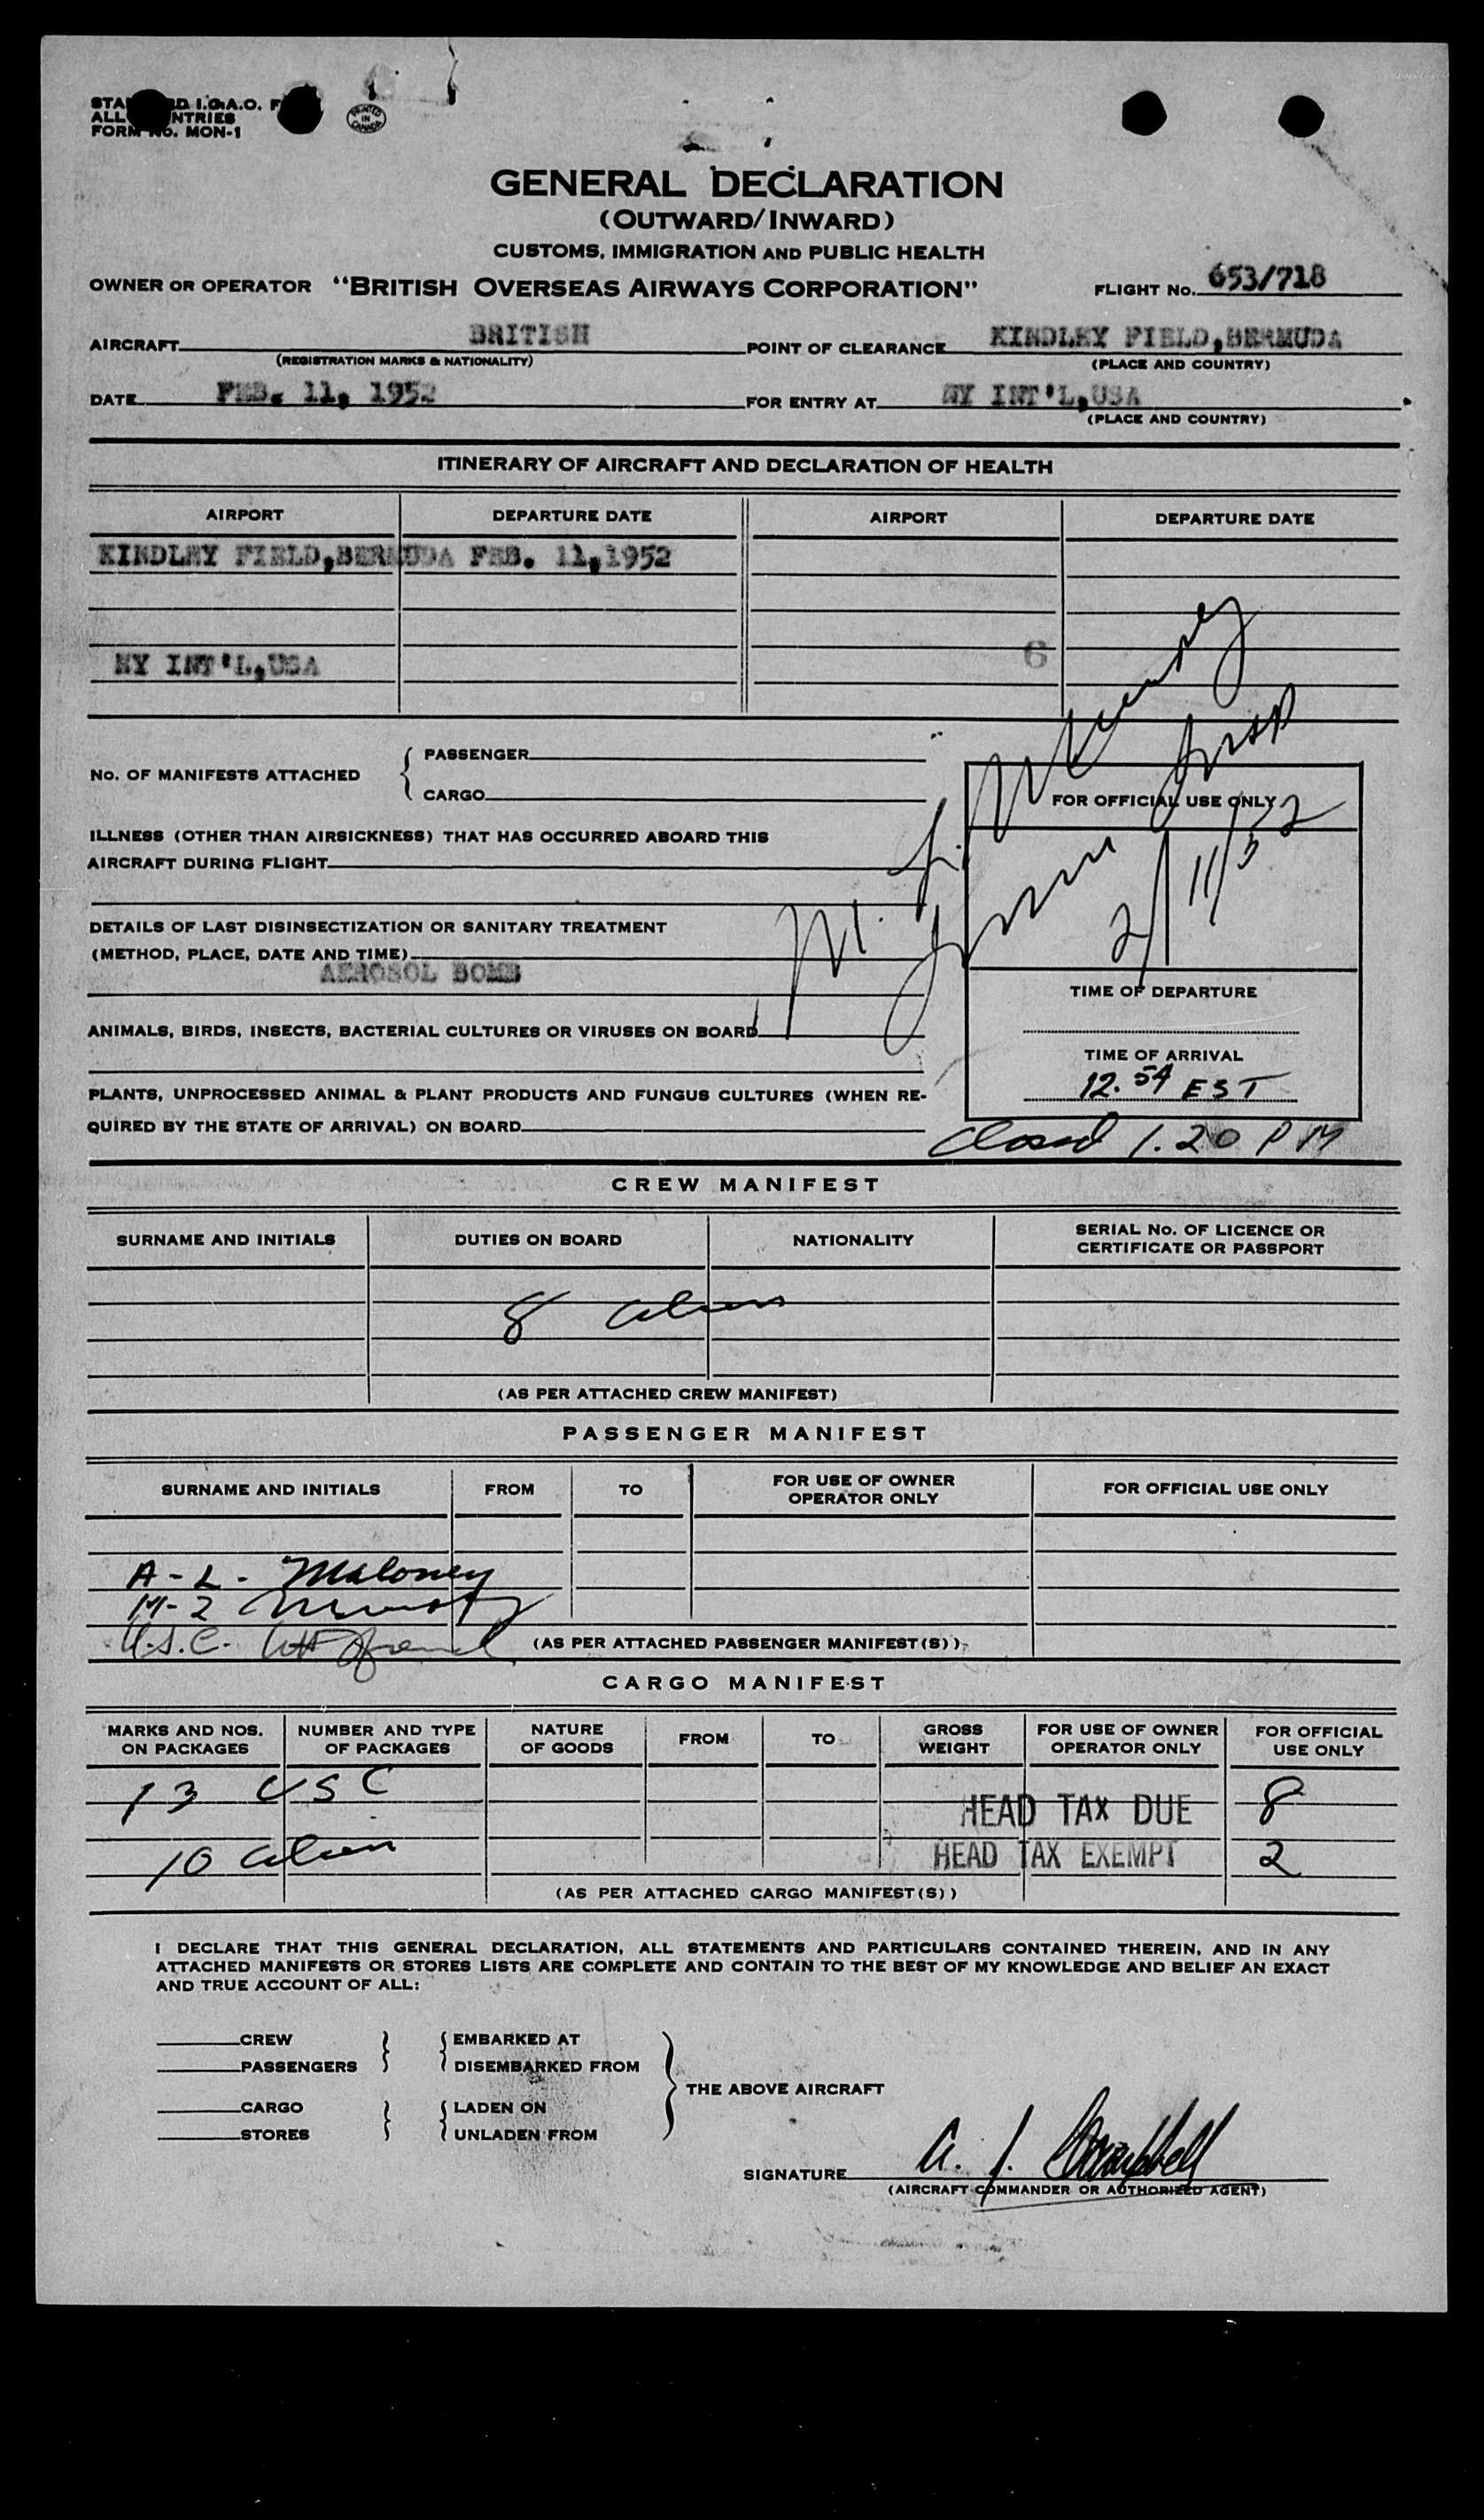 I.C.A.O.
FORM No. MON-1
PRINTED IN CANADA
GENERAL DECLARATION
(OUTWARD/INWARD)
CUSTOMS, IMMIGRATION AND PUBLIC HEALTH
OWNER OR OPERATOR "BRITISH OVERSEAS AIRWAYS CORPORATION" FLIGHT No. 653/718
AIRCRAFT BRITISH POINT OF CLEARANCE KINDLEY FIELD,BERMUDA
(REGISTRATION MARKS & NATIONALITY) (PLACE AND COUNTRY)
DATE FEB. 11, 1952 FOR ENTRY AT NY INT'L,USA
(PLACE AND COUNTRY)
ITINERARY OF AIRCRAFT AND DECLARATION OF HEALTH
AIRPORT DEPARTURE DATE AIRPORT DEPARTURE DATE
KINDLEY FIELD,BERMUDA FEB. 11,1952
NY INT'L,USA 6
No. OF MANIFESTS ATTACHED
PASSENGER
CARGO
FOR OFFICIAL USE ONLY
2/11/52
ILLNESS (OTHER THAN AIRSICKNESS) THAT HAS OCCURRED ABOARD THIS
AIRCRAFT DURING FLIGHT
DETAILS OF LAST DISINSECTIZATION OR SANITARY TREATMENT
(METHOD, PLACE, DATE AND TIME)
AEROSOL BOMB
TIME OF DEPARTURE
ANIMALS, BIRDS, INSECTS, BACTERIAL CULTURES OR VIRUSES ON BOARD
TIME OF ARRIVAL
12.54 EST
PLANTS, UNPROCESSED ANIMAL & PLANT PRODUCTS AND FUNGUS CULTURES (WHEN RE-
QUIRED BY THE STATE OF ARRIVAL) ON BOARD
Closed 1.20 PM
CREW MANIFEST
SURNAME AND INITIALS DUTIES ON BOARD NATIONALITY SERIAL No. OF LICENCE OR
CERTIFICATE OR PASSPORT
8 alien
(AS PER ATTACHED CREW MANIFEST)
PASSENGER MANIFEST
SURNAME AND INITIALS FROM TO FOR USE OF OWNER
OPERATOR ONLY FOR OFFICIAL USE ONLY
A-L- Maloney
M-Z
U.S.C.
(AS PER ATTACHED PASSENGER MANIFEST(S))
CARGO MANIFEST
MARKS AND NOS.
ON PACKAGES NUMBER AND TYPE
OF PACKAGES NATURE
OF GOODS FROM TO GROSS
WEIGHT FOR USE OF OWNER
OPERATOR ONLY FOR OFFICIAL
USE ONLY
13 USC
HEAD TAX DUE 8
10 alien HEAD TAX EXEMPT 2
(AS PER ATTACHED CARGO MANIFEST(S))
I DECLARE THAT THIS GENERAL DECLARATION, ALL STATEMENTS AND PARTICULARS CONTAINED THEREIN, AND IN ANY
ATTACHED MANIFESTS OR STORES LISTS ARE COMPLETE AND CONTAIN TO THE BEST OF MY KNOWLEDGE AND BELIEF AN EXACT
AND TRUE ACCOUNT OF ALL:
CREW EMBARKED AT
PASSENGERS DISEMBARKED FROM
THE ABOVE AIRCRAFT
CARGO LADEN ON
STORES UNLADEN FROM
SIGNATURE A. J. Campbell
(AIRCRAFT COMMANDER OR AUTHORIZED AGENT)